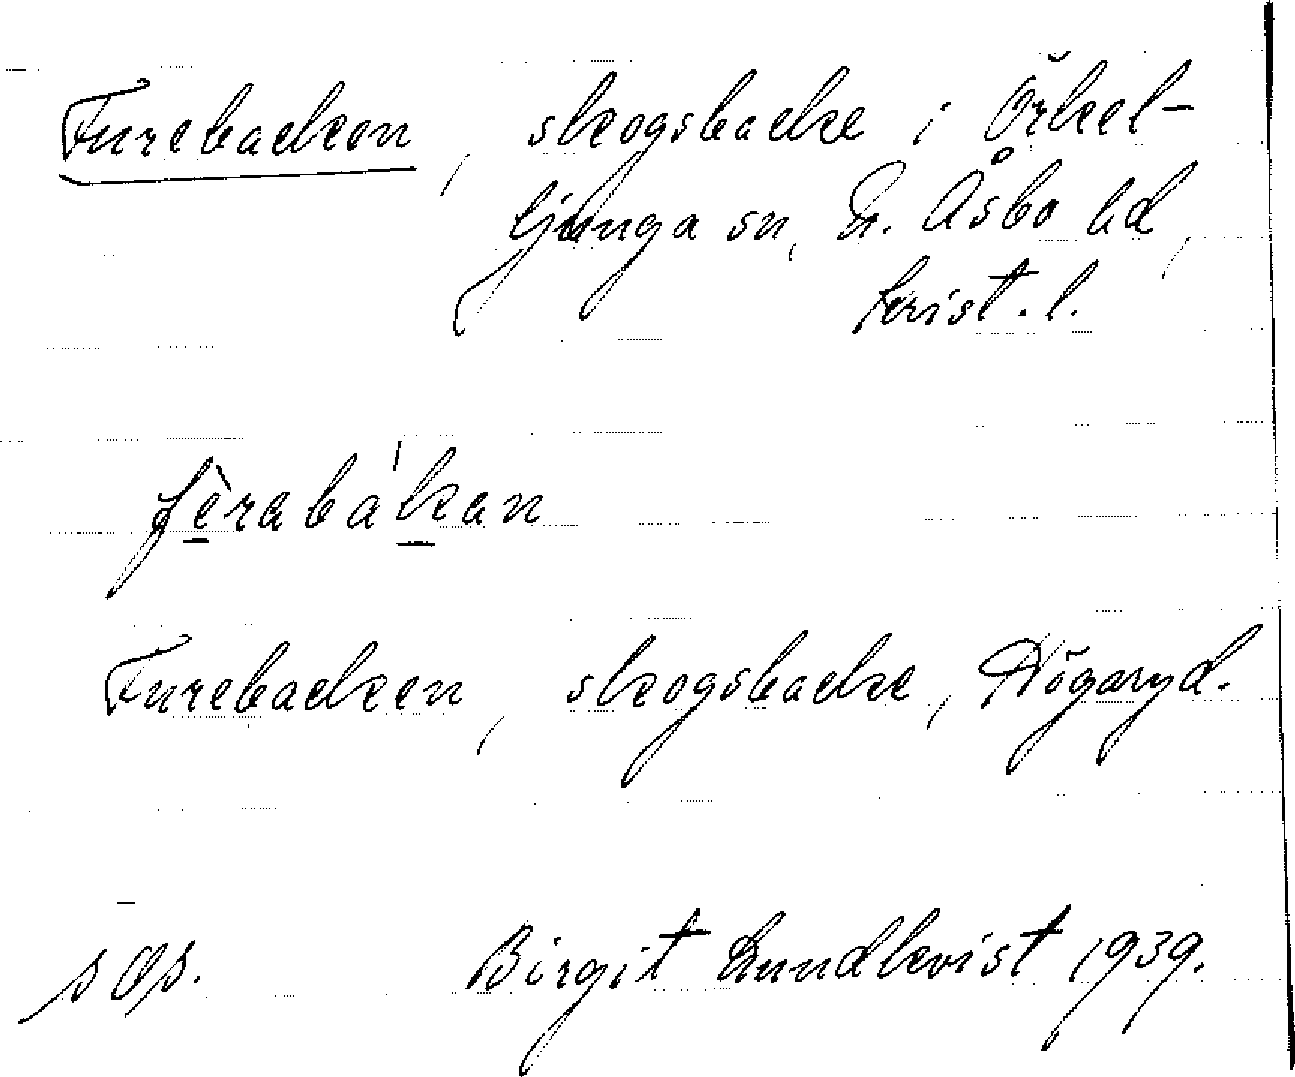 Furebacken, skogsbacke i Örkel-
ljunga sn, N. Åsbo hd,
Krist. l.
fèrabákan
Furebacken, skogsbacke, Högaryd.
Birgit Lundkvist 1939.